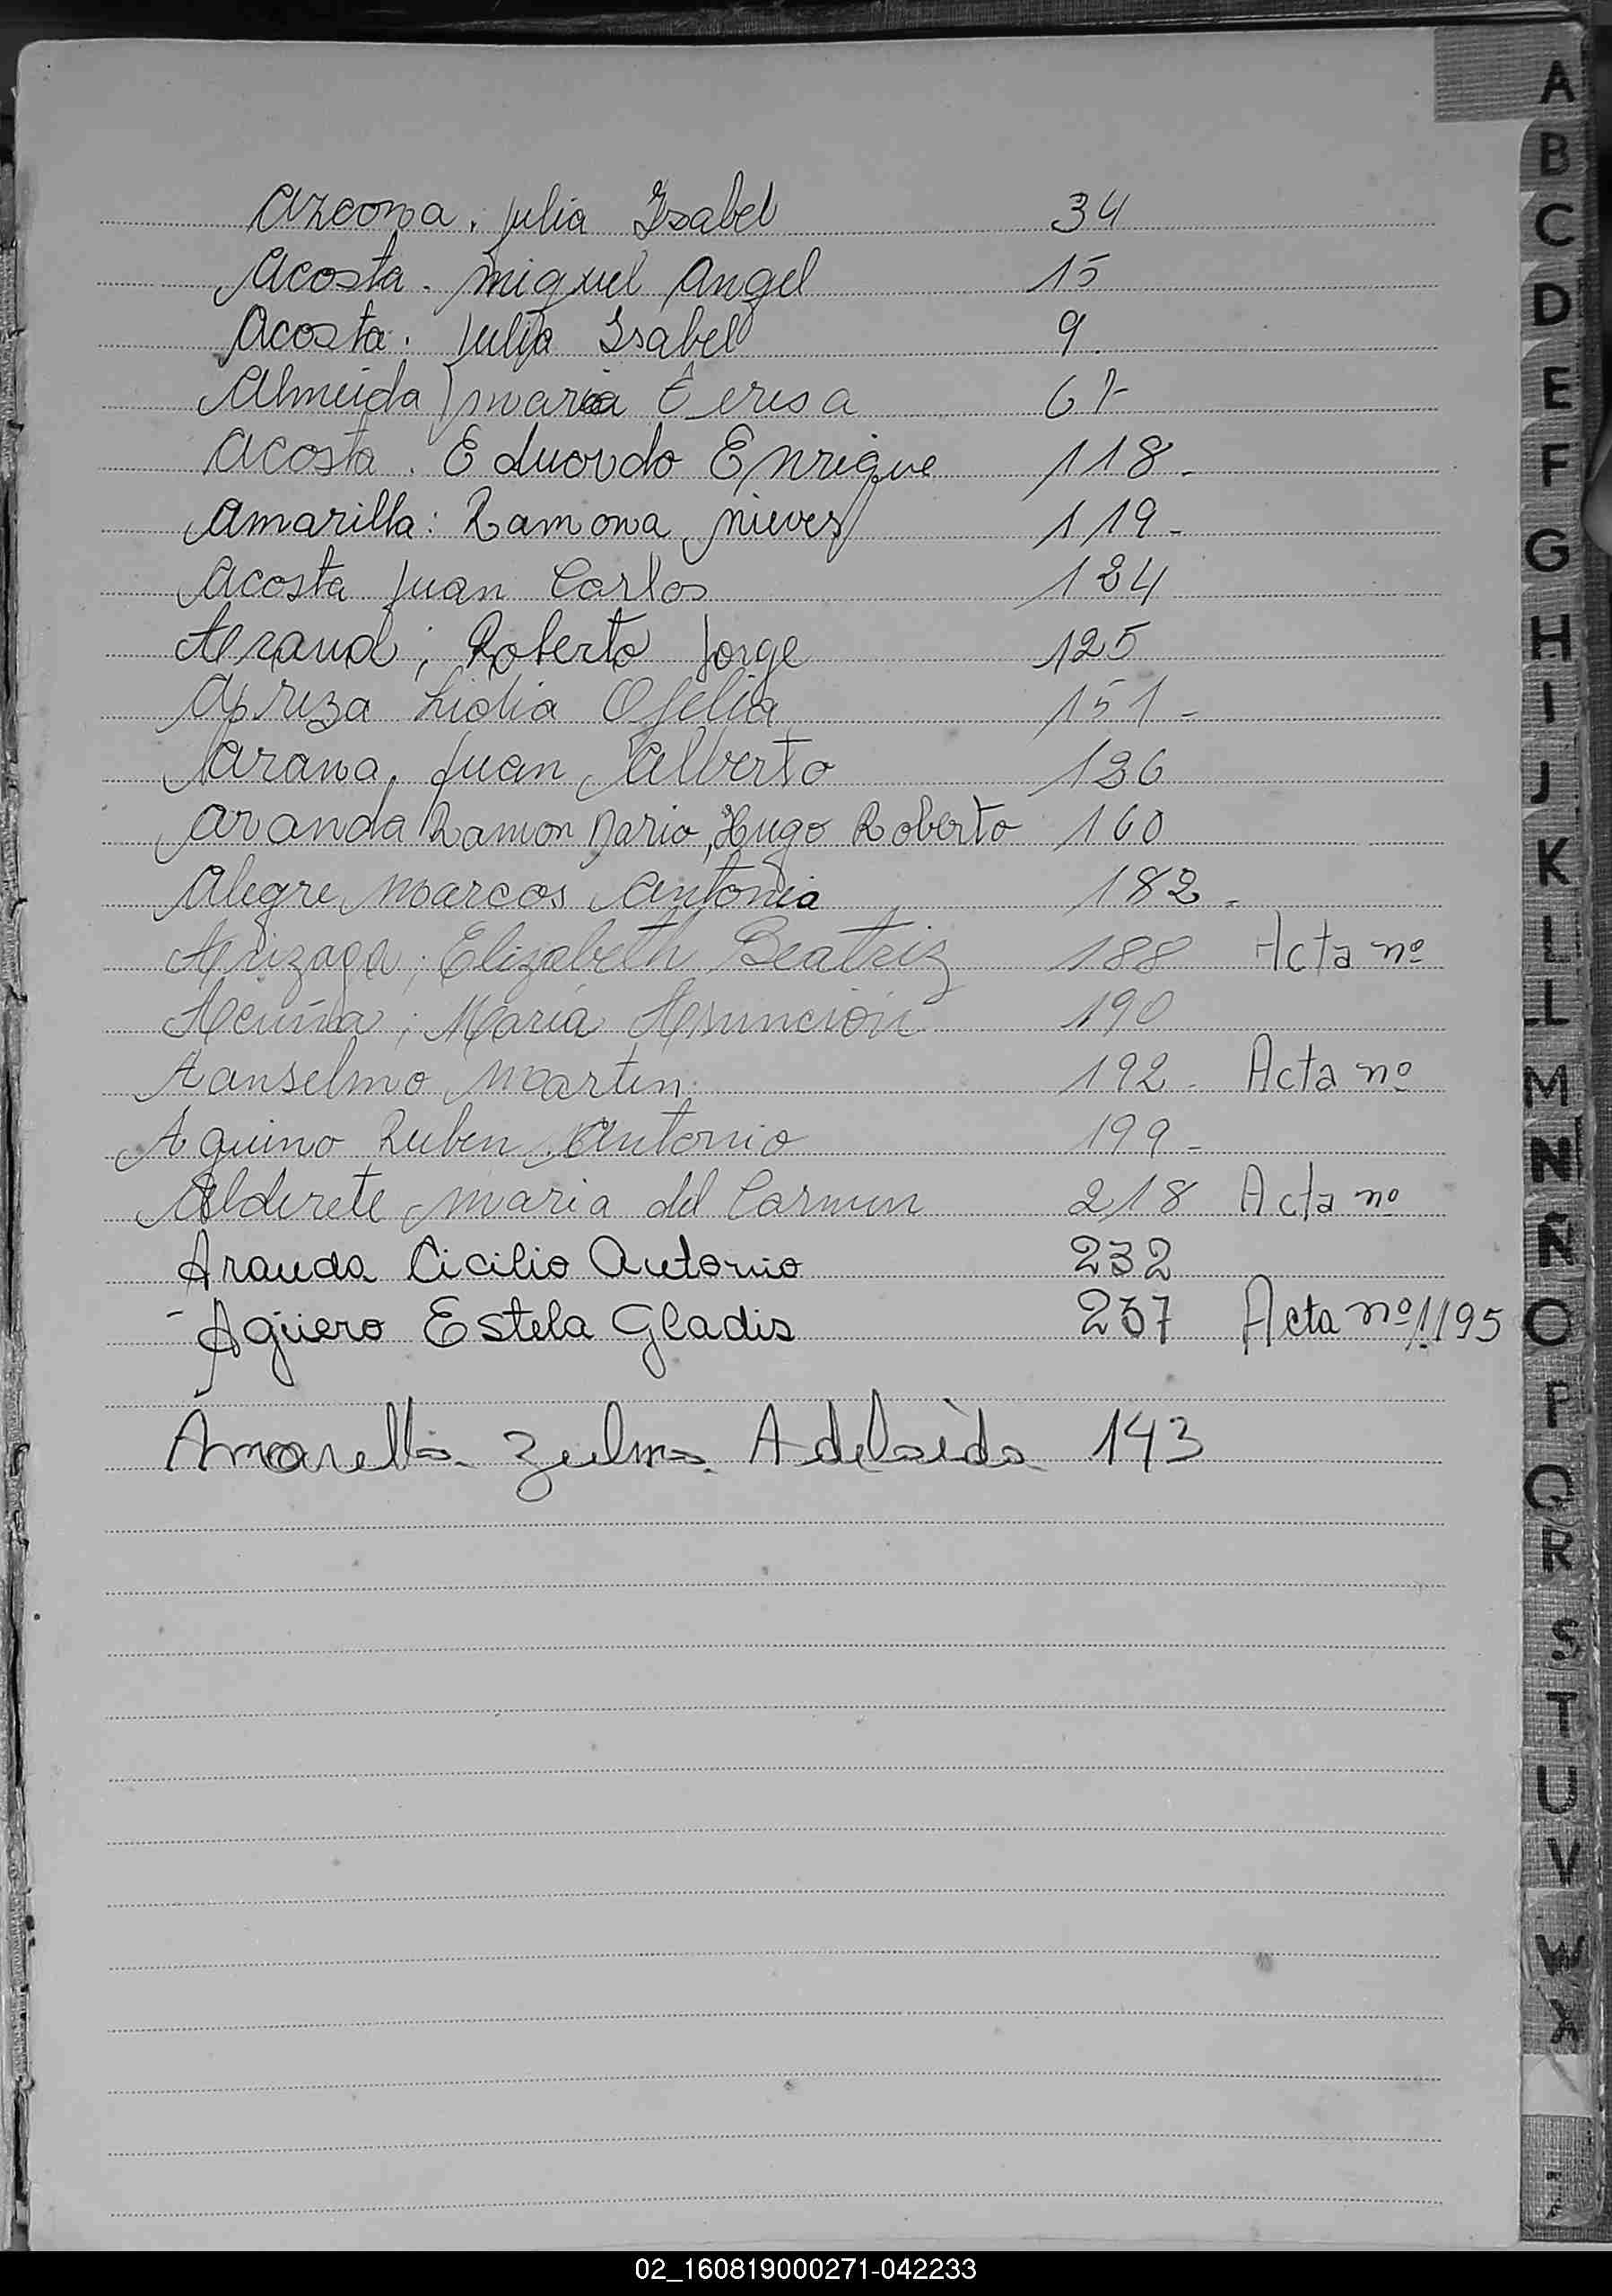 Azcona. Julia Isabel 34
Acosta. Miguel Angel 15
Acosta. Julia Isabel 9.
Almeida Maria Teresa 67
Acosta. Eduardo Enrique 118-
Amarilla: Ramona Nieves 119-
Acosta Juan Carlos 124
Araud; Roberto Jorge 125
Lidia Ofelia 151-
Arana, Juan Alberto 136
Aranda Ramon Dario, Hugo Roberto 160
Alegre Marcos Antonio 182-
Arizaga; Elizabeth Beatriz 188 Acta nº
Acuña; María Asunción 190
Anselmo Martin. 192- Acta nº
Aquino Ruben Antonio 199-
Alderete Maria del Carmen 218 Acta nº
Aranda Cicilio Antonio 232
- Agüero Estela Gladis 237 Acta nº 1195
Amarella Zulma Adelaida 143
A
B
C
D
E
F
G
H
I
J
K
L
LL
M
N
Ñ
O
P
Q
R
S
T
U
V
W
X
02_160819000271-042233